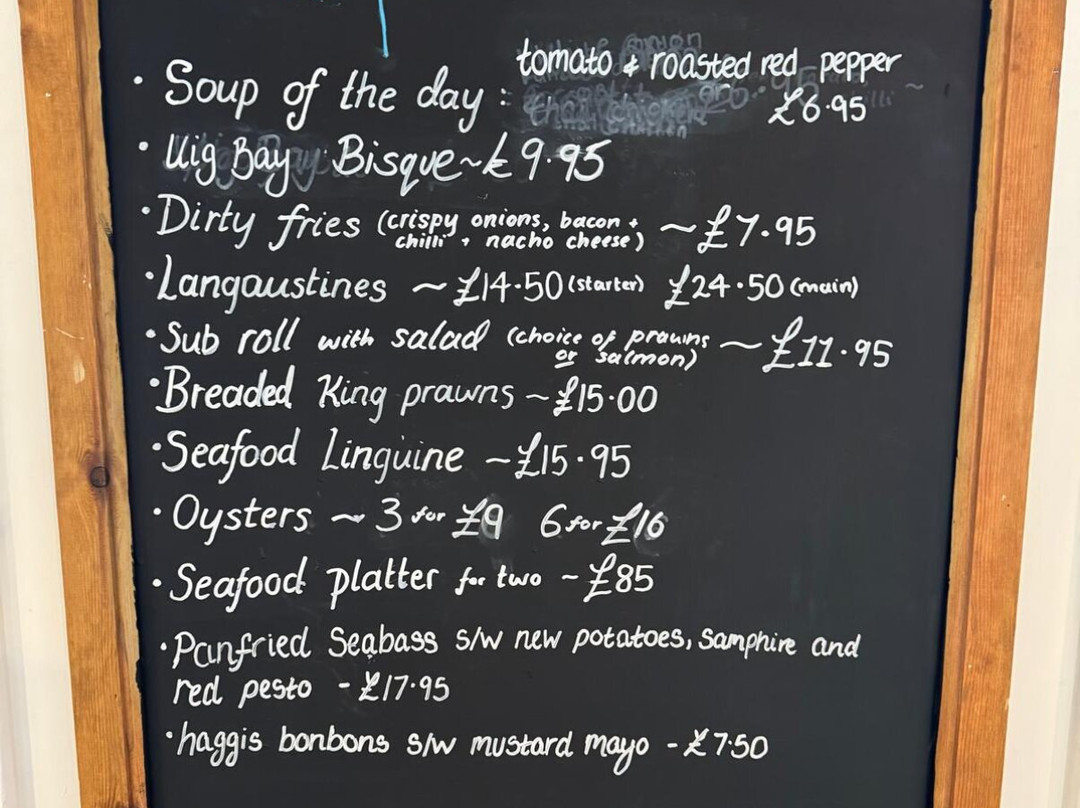 • Soup of the day : tomato & roasted red pepper £6.95
• Uig Bay Bisque ~ £9.95
• Dirty fries (crispy onions, bacon + ~ £7.95
chilli + nacho cheese)
• Langoustines ~ £14.50 (starter) £24.50 (main)
• Sub roll with salad (choice of prawns ~ £11.95
or salmon)
• Breaded King prawns ~ £15.00
• Seafood Linguine ~ £15.95
• Oysters ~ 3 for £9 6 for £16
• Seafood platter for two ~ £85
• Panfried Seabass s/w new potatoes, Samphire and
red pesto - £17.95
• haggis bonbons s/w mustard mayo - £7.50